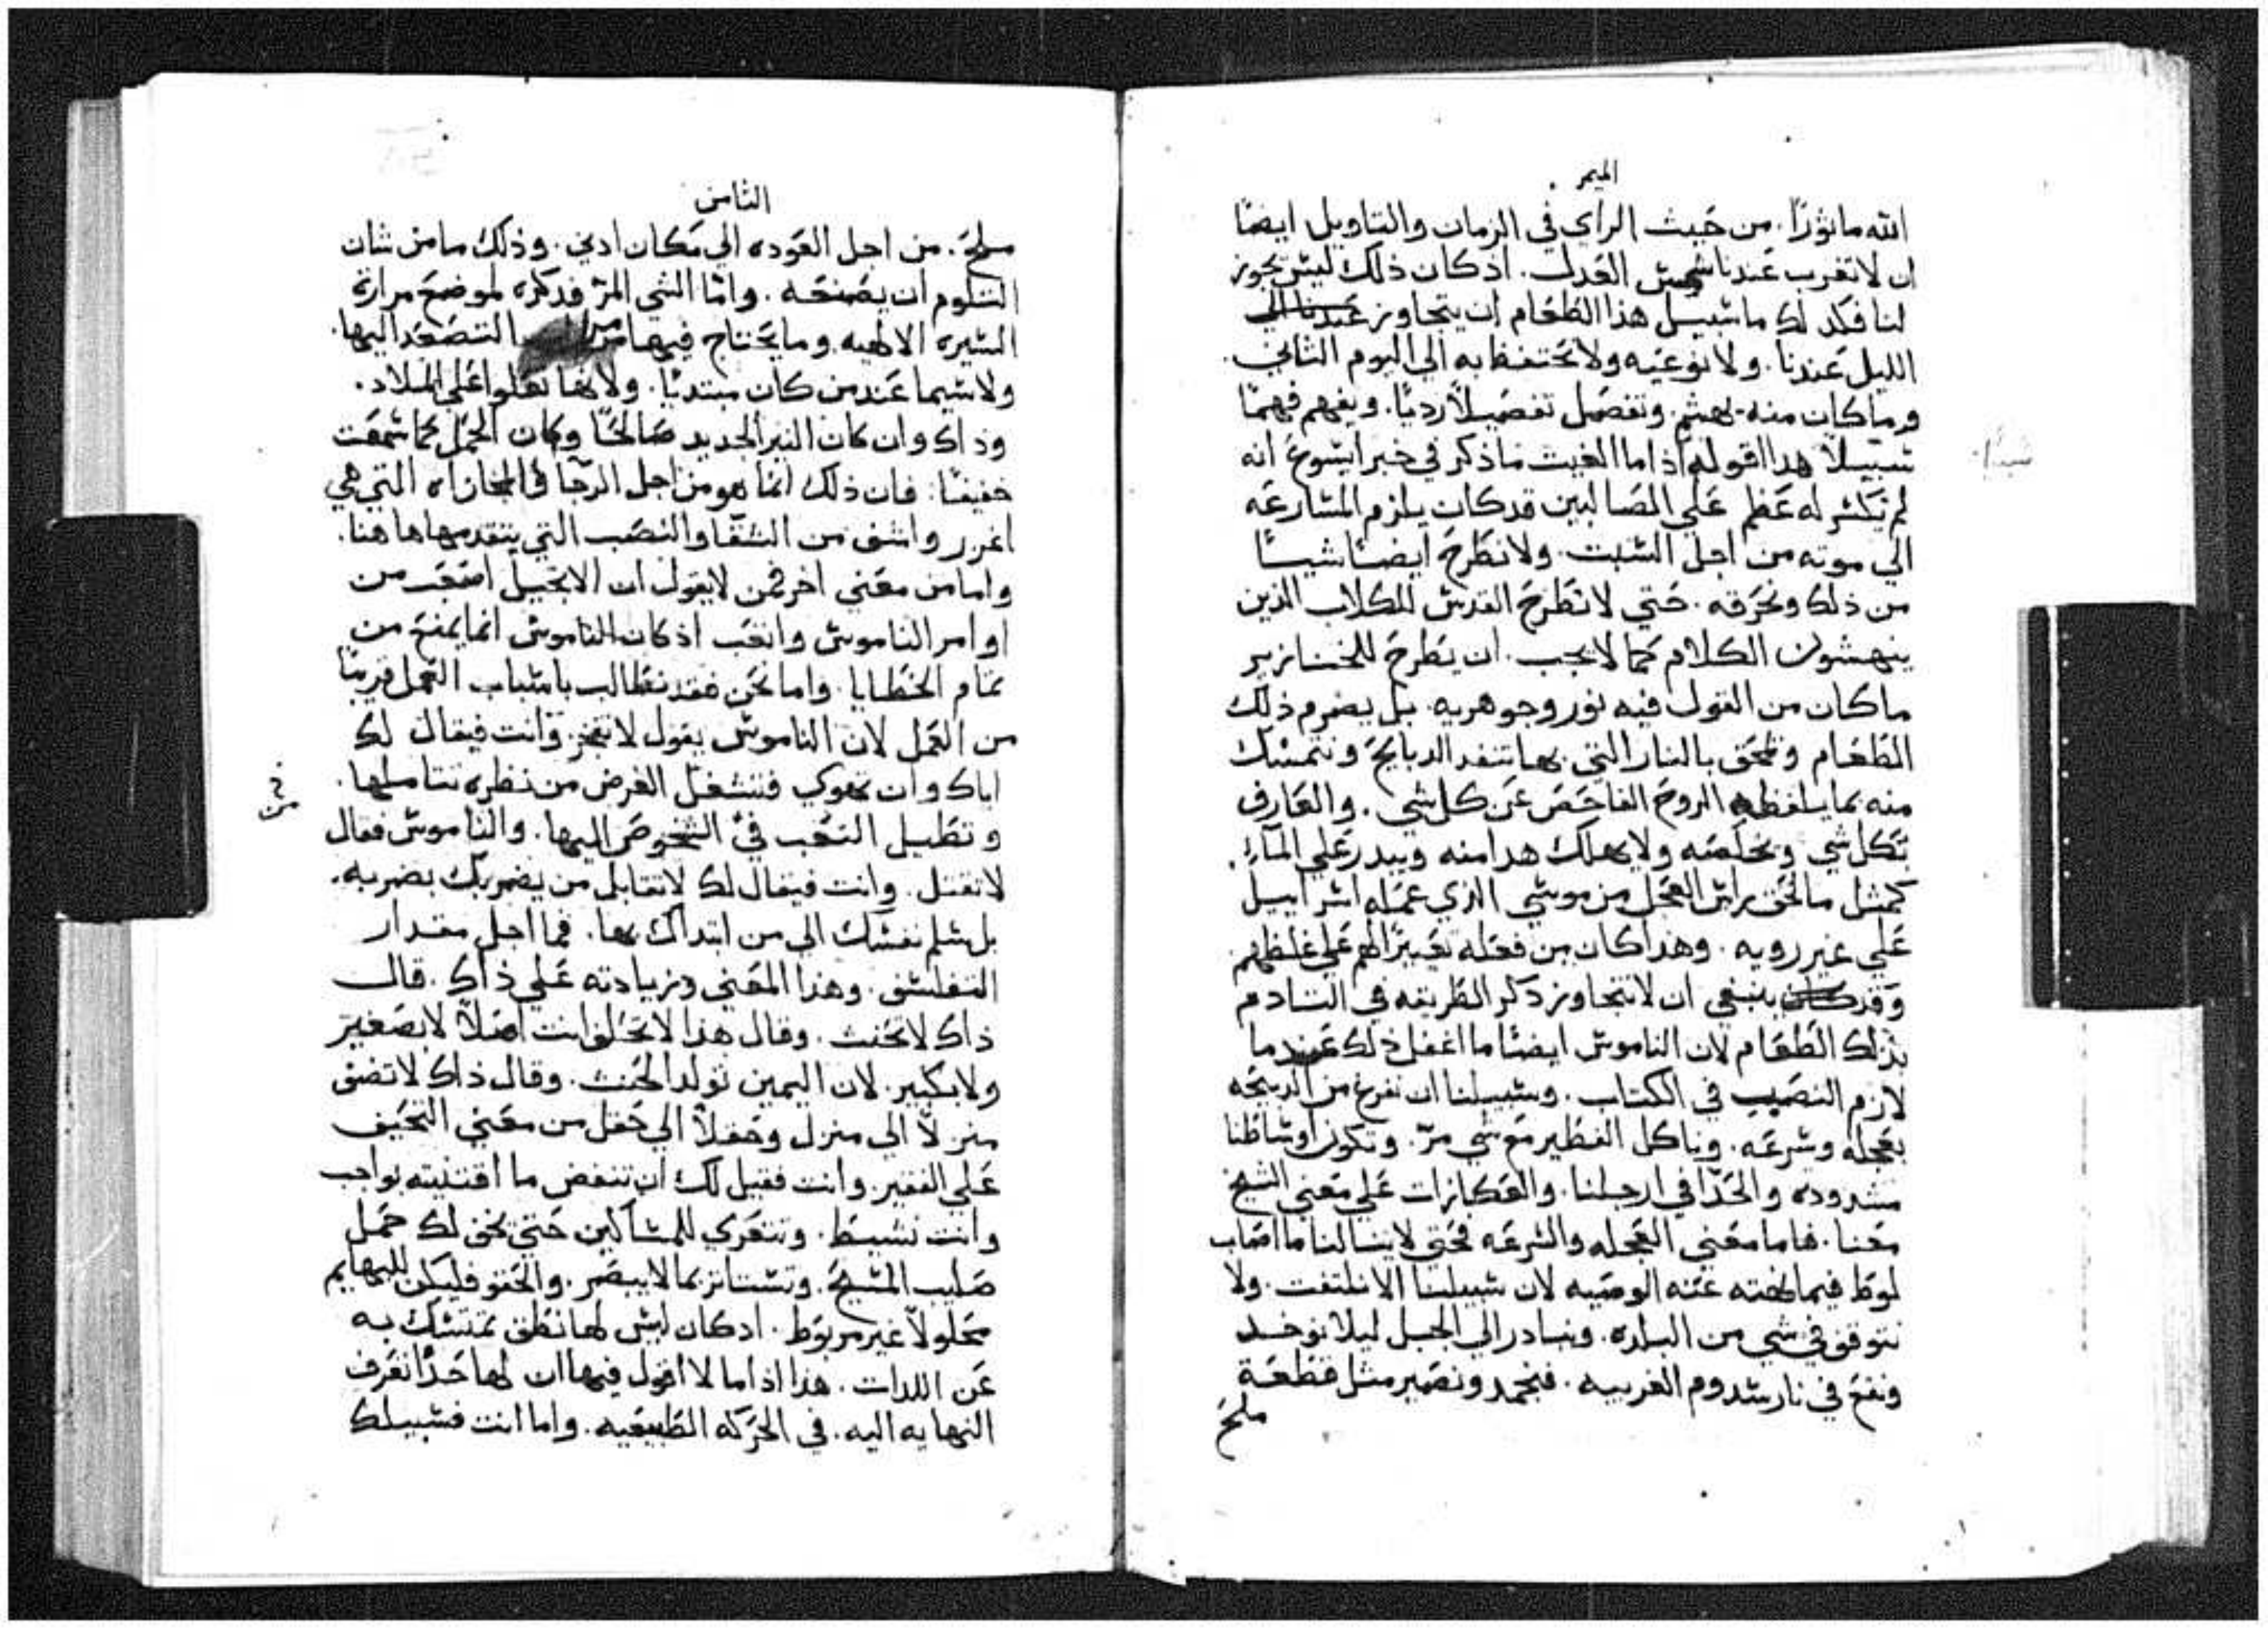 الميمر
الله ماثورًا. من حيث الراى في الزمان والتاويل ايضًا
ان لا تغرب عندنا شمش العدل. اذ كان ذلك ليش يجوز
لنا فكد لك ما شبيل هذا الطعام ان يتجاوز الي
الليل عندنا. ولا نوعيه ولا نحتفظ به الي اليوم الثاني.
وما كان منه يهشم وتفصل تفصيلاً رديًا. ويفهم فهمًا
شبيلا هدا القوله اذ اما الغيث ماذكر في خبر ايشوع انه
لم يكشر له عظم علي المصالبين قد كان يلزم المشارعه
الي موته من اجل الشبت. ولا نطرح ايضًا شيئًا
من ذلك ونحرقه. حتي لا نطرح القدش للكلاب الذين
ينهشون الكلام كما لا يجب. ان يطرح للخنازير
ما كان من القول فيه نور وجوهريه. بل يضرم ذلك
الطعام ونلحق بالنار التي بها تنفد الدبايح ونتمشك
منه بما يلفظه الروح الفاحص عن كل شي. والعارف
بكل شي ونخلصه ولا يهلك هدا منه ويبدر علي المآء.
كمثل ما لحق براش العجل من موشي الذي عمله اشراييل
علي غير رويه. وهذا كان من فعله تعييرًا لهم علي غلظهم
وقد ينبغي ان لا نتجاوز دكر الطريقه في التادم
بذلك الطعام لان الناموش ايضًا ما اغفل ذلك عندما
لازم النصيب في الكتاب. وشبيلنا ان نفرغ من الدبيحه
بعجله وشرعه. وناكل الفطير مع شي مرّ. وتكون اوشاطنا
مشدوده والحدا في ارجلنا. والعكازات علي معني الشيخ
معنا. فاما معني العجله والشرعه فحتي لا ينالنا ما اصاب
لوط فيما نهته عنه الوصيه لان شبيلنا الا نلتفت. ولا
نتوقف في شي من البلده. ونبادر الي الجبل ليلا نوخد
ونقع في نار شدوم الغريبه. فنجمد ونصير مثل قطعة
ملح
الثامن
ملح. من اجل العوده الي مكان ادني. وذلك ما من شان
التلوم ان يصنعه. وامّا الشي المرّ فدكره لموضع مرارة
الشيره الالهيه وما يحتاج فيها التصعد اليها.
ولا شيما عند من كان مبتديًا. ولانها تعلوا علي الميلاد.
وذاك وان كان النير الجديد صالحًا وكان الحمل كما شمعت
خفيفًا. فان ذلك انما هو من اجل الرجا في المجازاه التي هي
اغزر واشنى من الشقا والنصب التي يتقدمها هاهنا.
واما من معني اخر فمن لا يقول ان الانجيل اصعب من
اوامر الناموش واتعب اذ كان الناموش انما يمنع من
تمام الخطايا. واما نحن فقد نطالب باشباب العمل قريبًا
من العمل لان الناموش يقول لا تفجر. وانت فيقال لك
اياك وان تهوي فتشغل الغرض من نظره تتاملها.
وتطيل التعب في الشخوص اليها. والناموش فقال
لا تقتل. وانت فيقال لك لا تقابل من يضربك بضربه.
بل شلم نفشك الي من ابتداك بها. فما اجل مقدار
التفلشف. وهذا المعني وزيادته علي ذاك. قال
ذاك لا تحنث. وقال هذا لا تحلف انت اصلاً لا بصغير
ولا بكبير. لان اليمين تولد الحنث. وقال ذاك لا تضف
منزلاً الي منزل وحقلاً الي حقل من معني التحيف
علي الفقير. وانت فقيل لك ان تنفض ما اقتنيته بواجب
وانت نشيط. وتتعري للمشاكين حتي يخف لك حمل
صليب المشيح. وتشتانز بما لا يبصر. والحقو فليكن للبهايم
محلولاً غير مربوط. ادكان ليش لها نطق تمتشك به
عن اللدات. هذا اذ اما لا اقول فيها ان لها حدًا تعرف
النهايه اليه. في الحركه الطبيعيه. واما انت فشبيلك